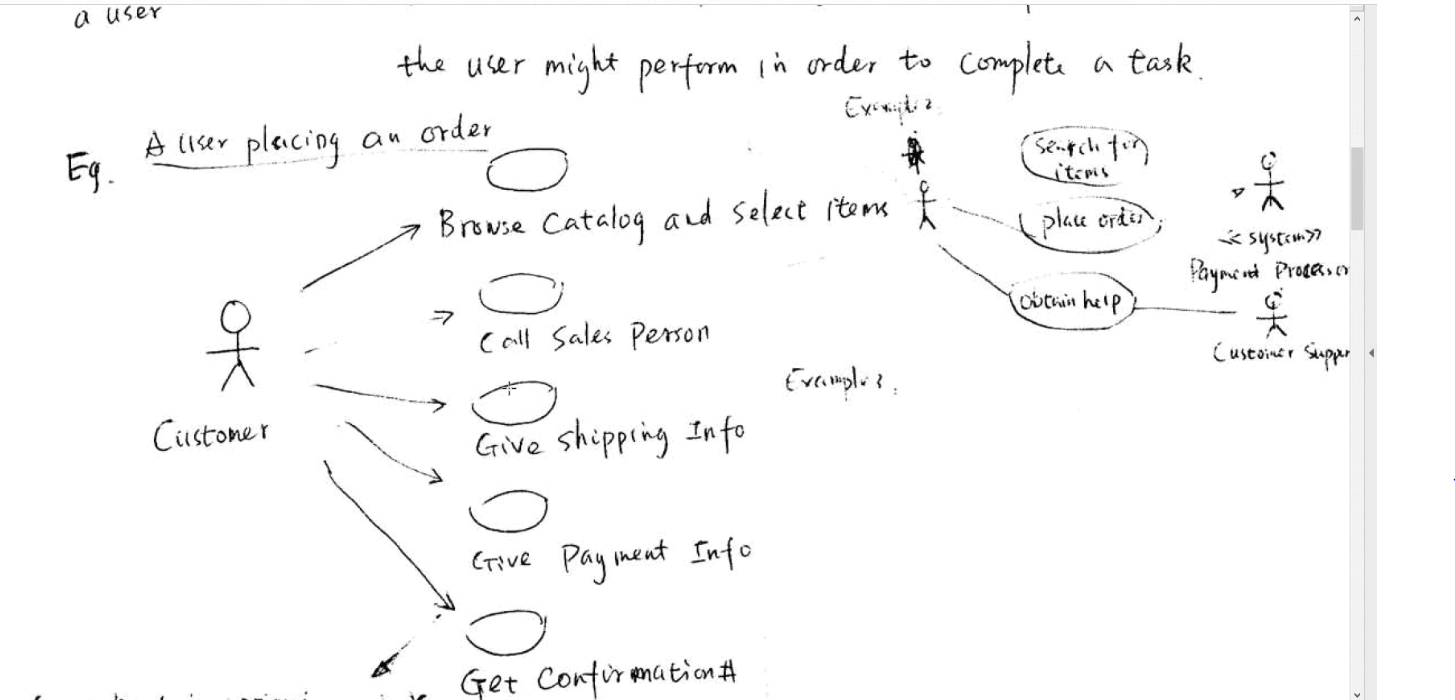 a user
the user might perform in order to complete a task.
Eg. A user placing an order
Browse Catalog and select items
Call Sales Person
Give shipping Info
Give Payment Info
Get Confirmation#
Customer
Example 2
search for
items
place order
obtain help
<<system>>
Payment Processor
Customer Suppor
Example 3.